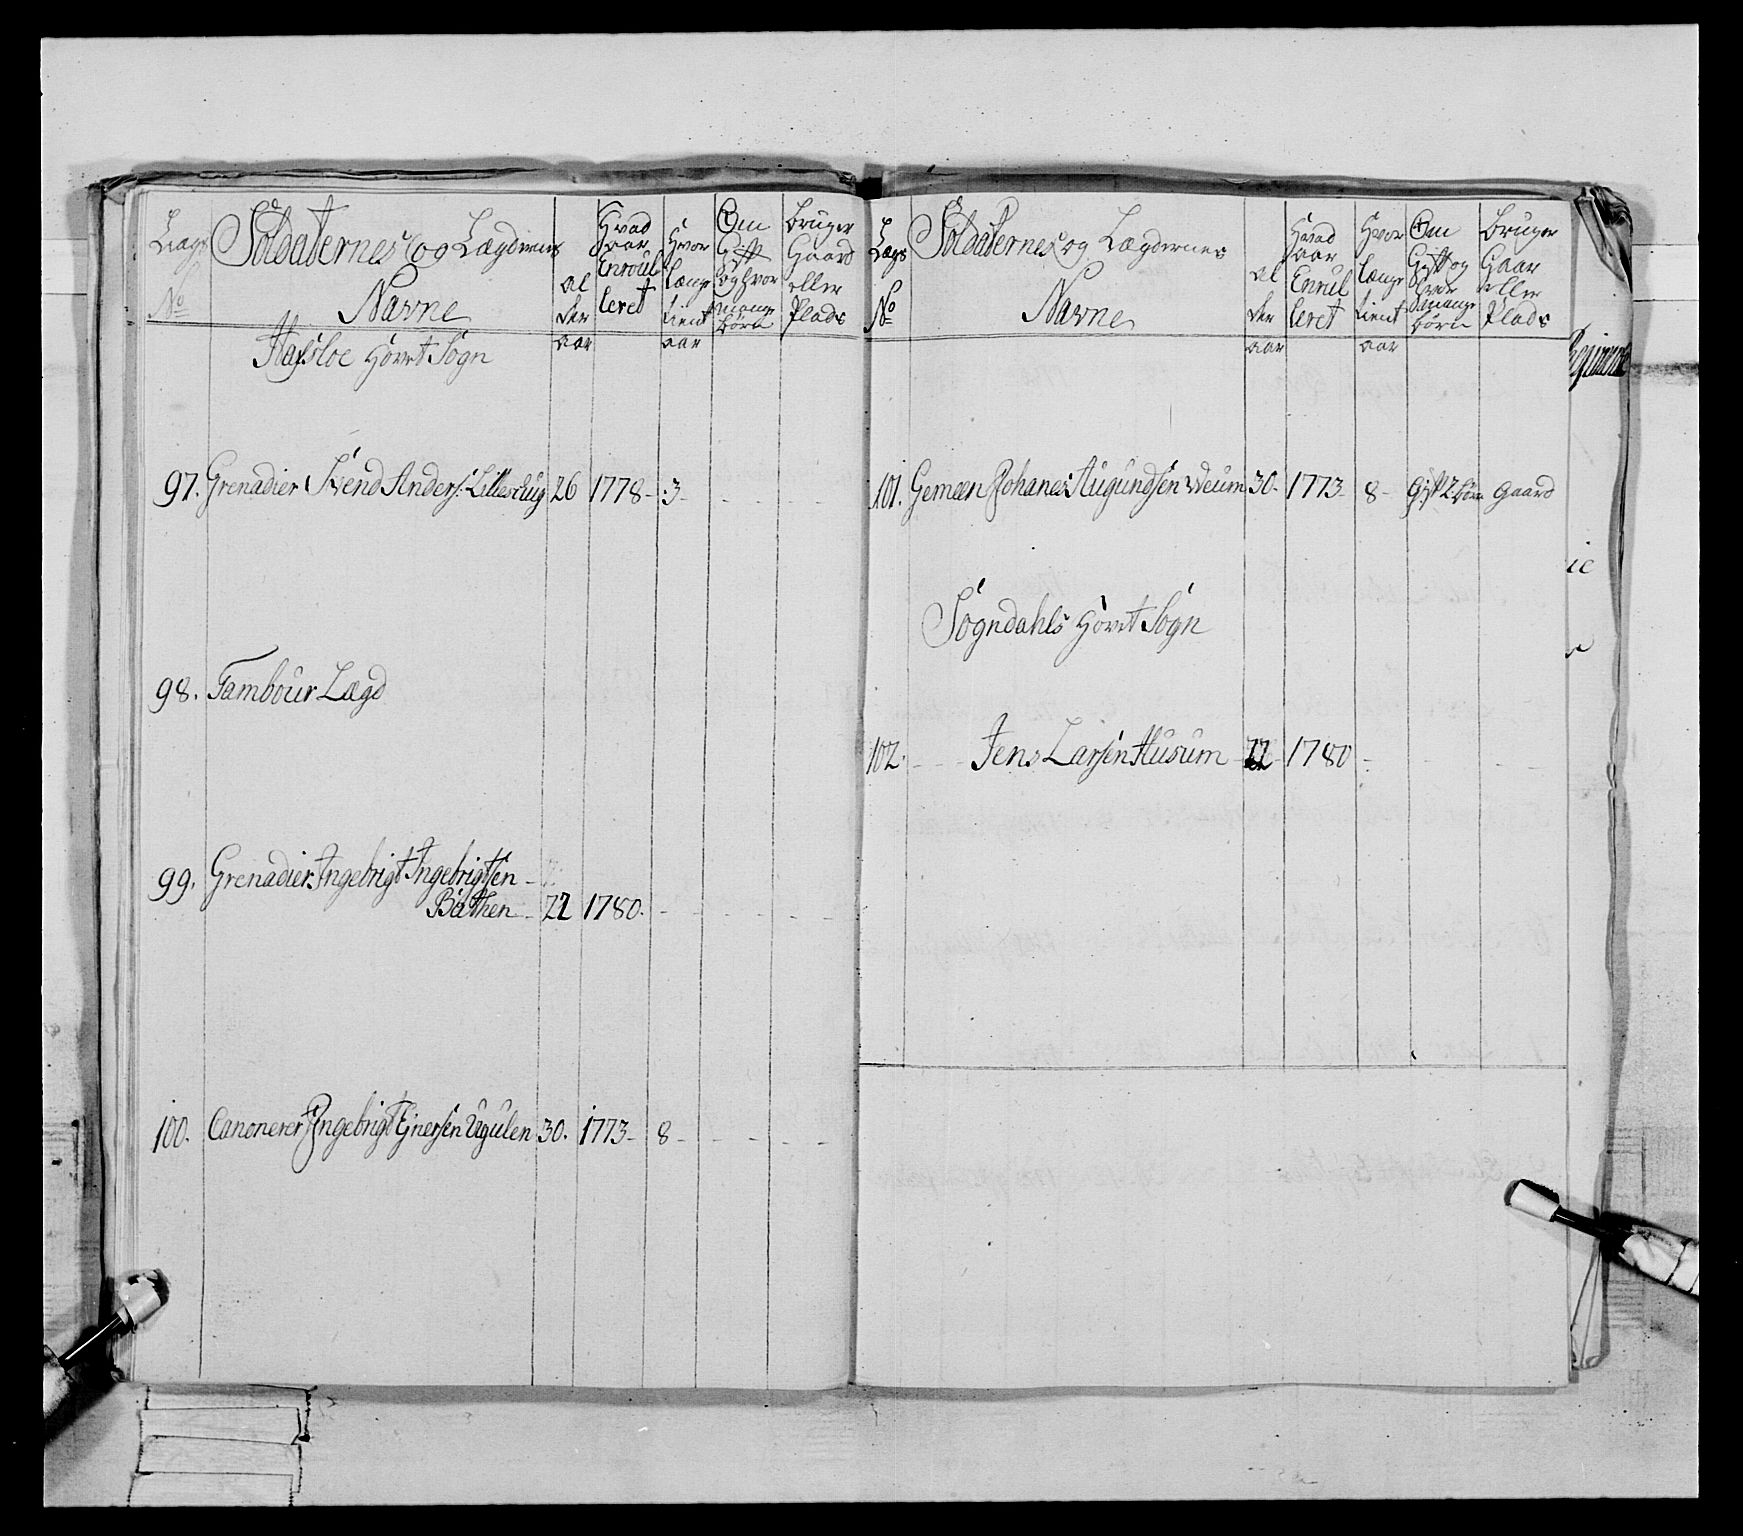 Lægs Soldaternes og Lægdernes
No Navne
al
der
aar
Hvad
aar
Enroul
leret
Hvor
længe
tient
aar
Om
Gift
og hvor
mange
börn
bruger
Gaard
eller
Plads
Hafsloe Hovet Sogn
97. Grenadier Svend Anders: 26 1778 - 3 -
98. Tambour Lægd
99. Grenadier Ingebrigt Ingebrigtsen -
22 1780.
100. Canonerer Ingebrigt Ejnersen Ugulen 30. 1773 - 8 -
Lægs Soldaternes og Lægdernes
No Navne
al
der
aar
Hvad
aar
Enrul
leret
Hvor
længe
tient
aar
Om
Gift og
hvor
mange
börn
bruger
Gaar
eller
Plads
101. Gemeen Johanes Augundsen 30. 1773 8 - Gift 2 börn Gaard
Sogndahls Hovet Sogn
102. Jens Larsen Husum 22 1780